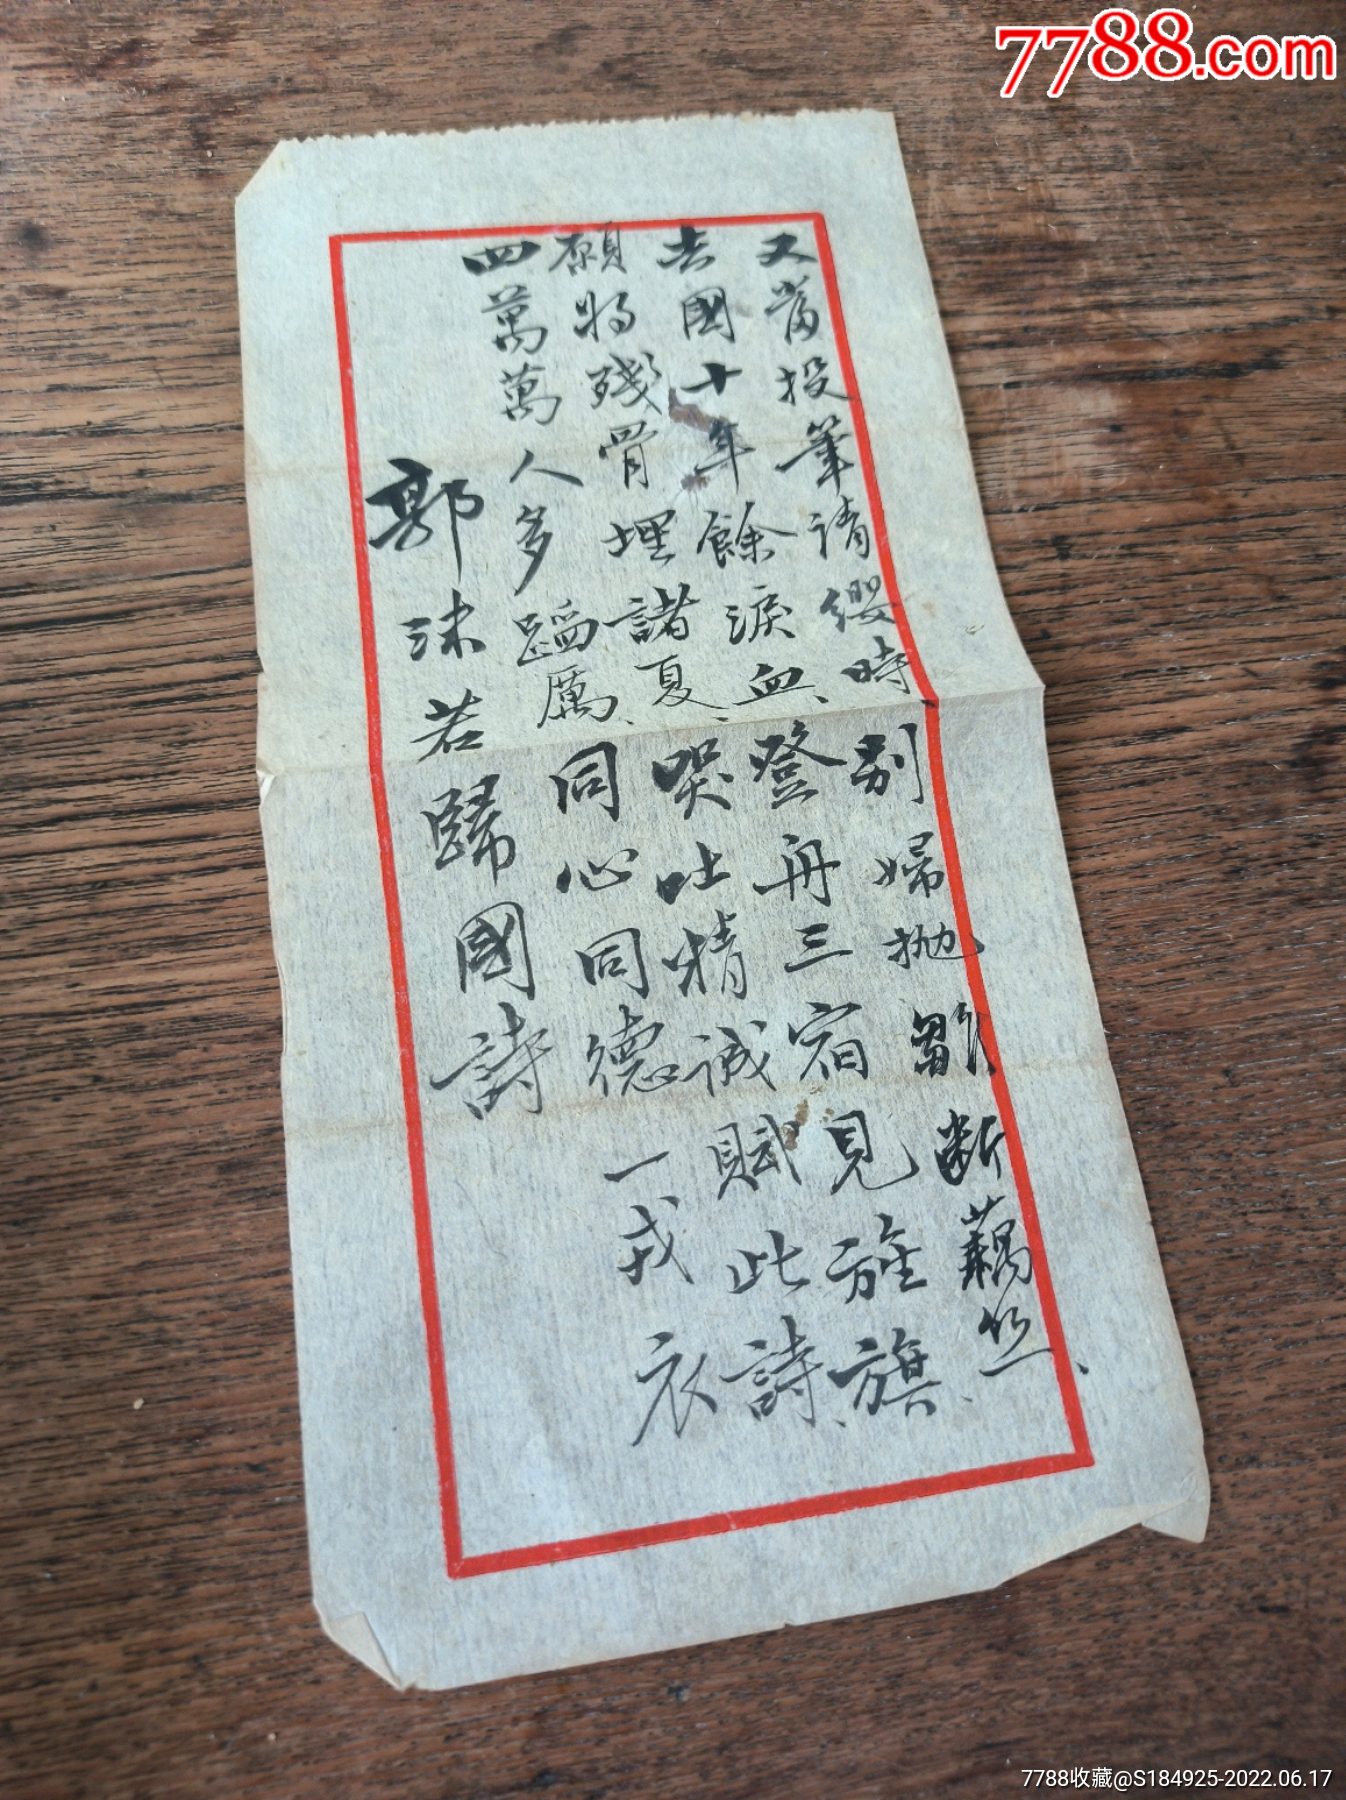 7788.com
又當投筆請纓時別婦抛雛斷藕絲、
去國十年餘淚血、登舟三宿見旌旗、
願將殘骨埋諸夏、哭吐精誠賦此詩、
四萬萬人多蹈厲、同心同德一戎衣
郭沫若歸國詩
7788收藏@S184925-2022.06.17